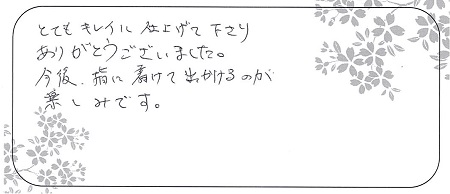 とても キレイに 仕上げて 下さり
ありがとうございました。
今後、指に 着けて 出かけるのが
楽しみです。